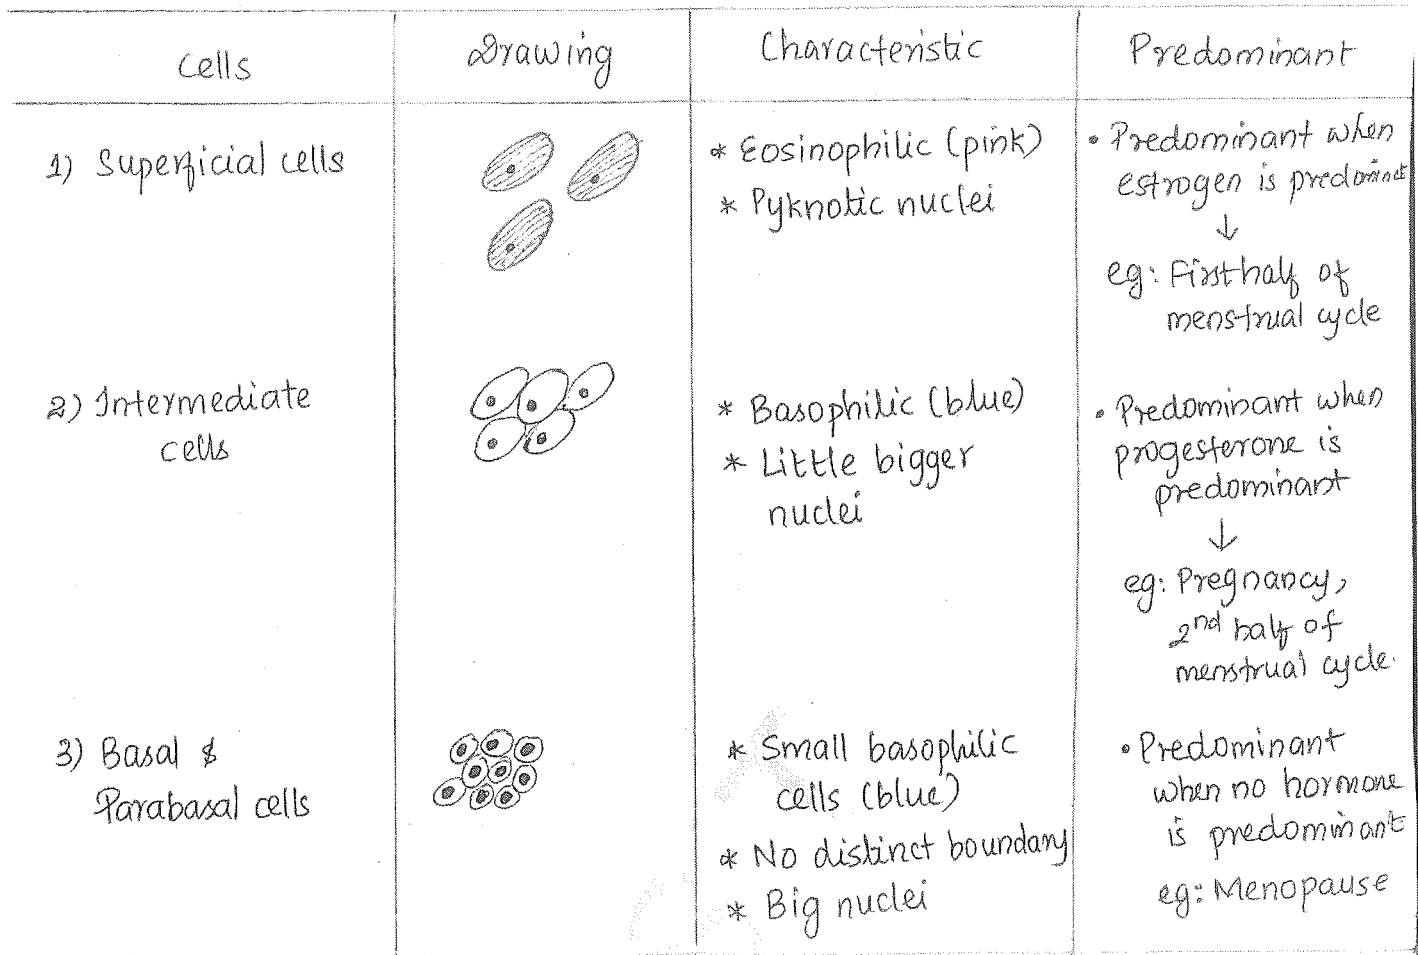 Cells
Drawing
Characteristic
Predominant
1) Superficial cells
* Eosinophilic (pink)
* Pyknotic nuclei
• Predominant when
estrogen is predominant
↓
eg: First half of
menstrual cycle
2) Intermediate
cells
* Basophilic (blue)
* Little bigger
nuclei
• Predominant when
progesterone is
predominant
↓
eg: Pregnancy,
2nd half of
menstrual cycle.
3) Basal &
Parabasal cells
* Small basophilic
cells (blue)
* No distinct boundary
* Big nuclei
• Predominant
when no hormone
is predominant
eg: Menopause